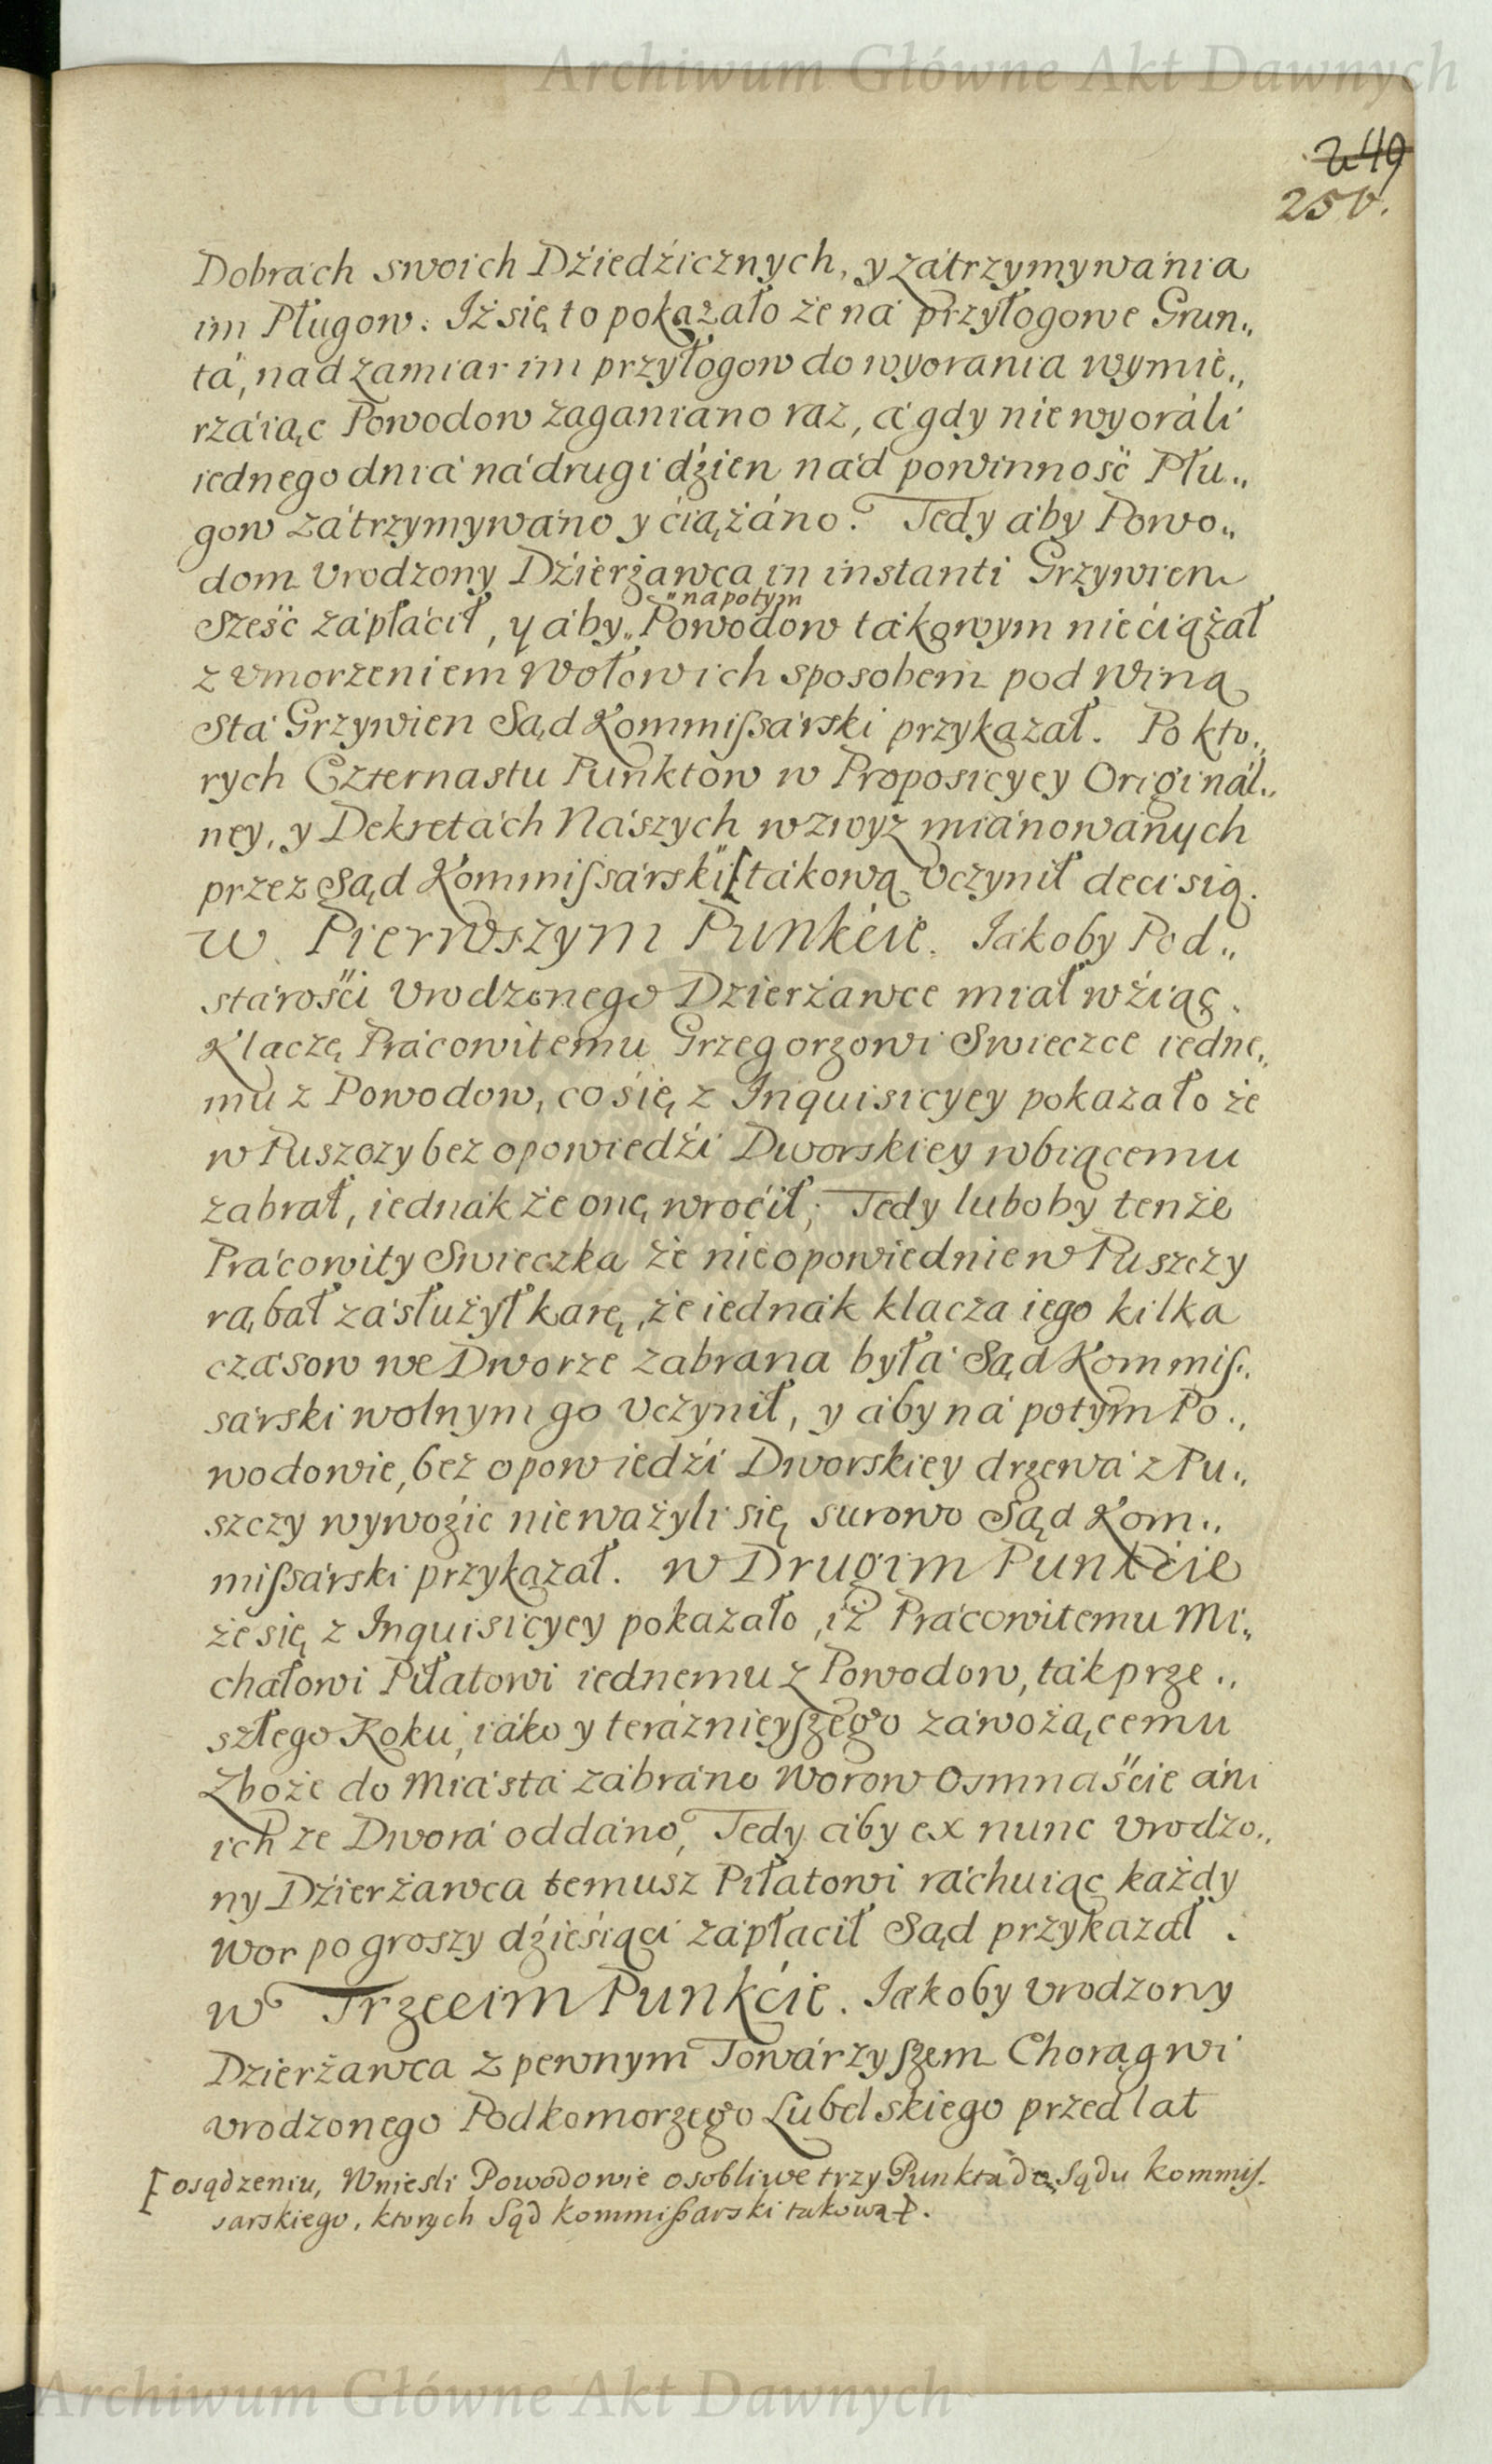 Archiwum Główne Akt Dawnych
249
250.
Dobrách swoich Dźiedźicznych, y zátrzymywánia
im Pługow. Iż się to pokazało że ná przyłogowe Grun„
tá, nad zamiar im przyłogow do wyorania wymie„
rzáiąc Powodow zaganiano raz, á gdy nie wyoráli
iednego dniá ná drugi dźien nád powinność Płu„
gow zátrzymywáno y ćiążáno. Tedy áby Powo„
dom Vrodzony Dźierżawca in instanti Grzywien
„napotym
sześć zápłáćił, y áby„ Powodow tákowym nie ćiążał
z vmorzeniem Wołow ich sposobem pod Winą
Stá Grzywien Sąd Kommiſsárski przykazał. Po kto„
rych Czternastu Punktow w Proposicyey Originál„
ney, y Dekretách Nászych wzwyż miánowánych
przez Sąd Kommiſsárski [tákową Vczynił decisią.
w Pierwszym Punkćie. Jákoby Pod„
stárośći Vrodzonego Dzierżawce miał wźiąć
Klaczę Prácowitemu Grzegorzowi Swieczce iedne„
mu z Powodow, co śię z Inquisicyey pokazało że
w Puszczy bez opowiedźi Dworskiey wbiącemu
zabrał, iednák że onę wroćił, Tedy luboby tenże
Prácowity Swieczka że nieopowiednie w Puszczy
rąbał zásłużył karę, że iednák klacza iego kilka
czásow we Dworze zabrana byłá Sąd Kommiſ„
sárski wolnym go Vczynił, y áby ná potym Po„
wodowie, bez opowiedźi Dworskiey drzewá z Pu„
szczy wywoźić nie ważyli się surowo Sąd Kom„
miſsárski przykazał. w Drugim Punkćie
że się z Inquisicyey pokazało, iż Prácowitemu Mi„
chałowi Piłatowi iednemu z Powodow, ták prze„
szłego Roku, iáko y teráznieyſzego záwożącemu
Zboże do Miástá zábráno Worow Osmnaśćie áni
ich ze Dworá oddáno, Tedy áby ex nunc Vrodzo„
ny Dźierżawca temusz Piłatowi ráchuiąc każdy
Wor po groszy dźieśiąći zápłacił Sąd przykazał.
w Trzecim Punkćie. Jakoby Vrodzony
Dzierżawca z pewnym Towárzyſzem Chorągwi
Vrodzonego Podkomorzego Lubelskiego przed lat
[ osądzeniu, Wniesli Powodowie osobliwe trzy Punkta do Sądu Kommiſ-
sarskiego, ktorych Sąd Kommißarski takową.
Archiwum Główne Akt Dawnych